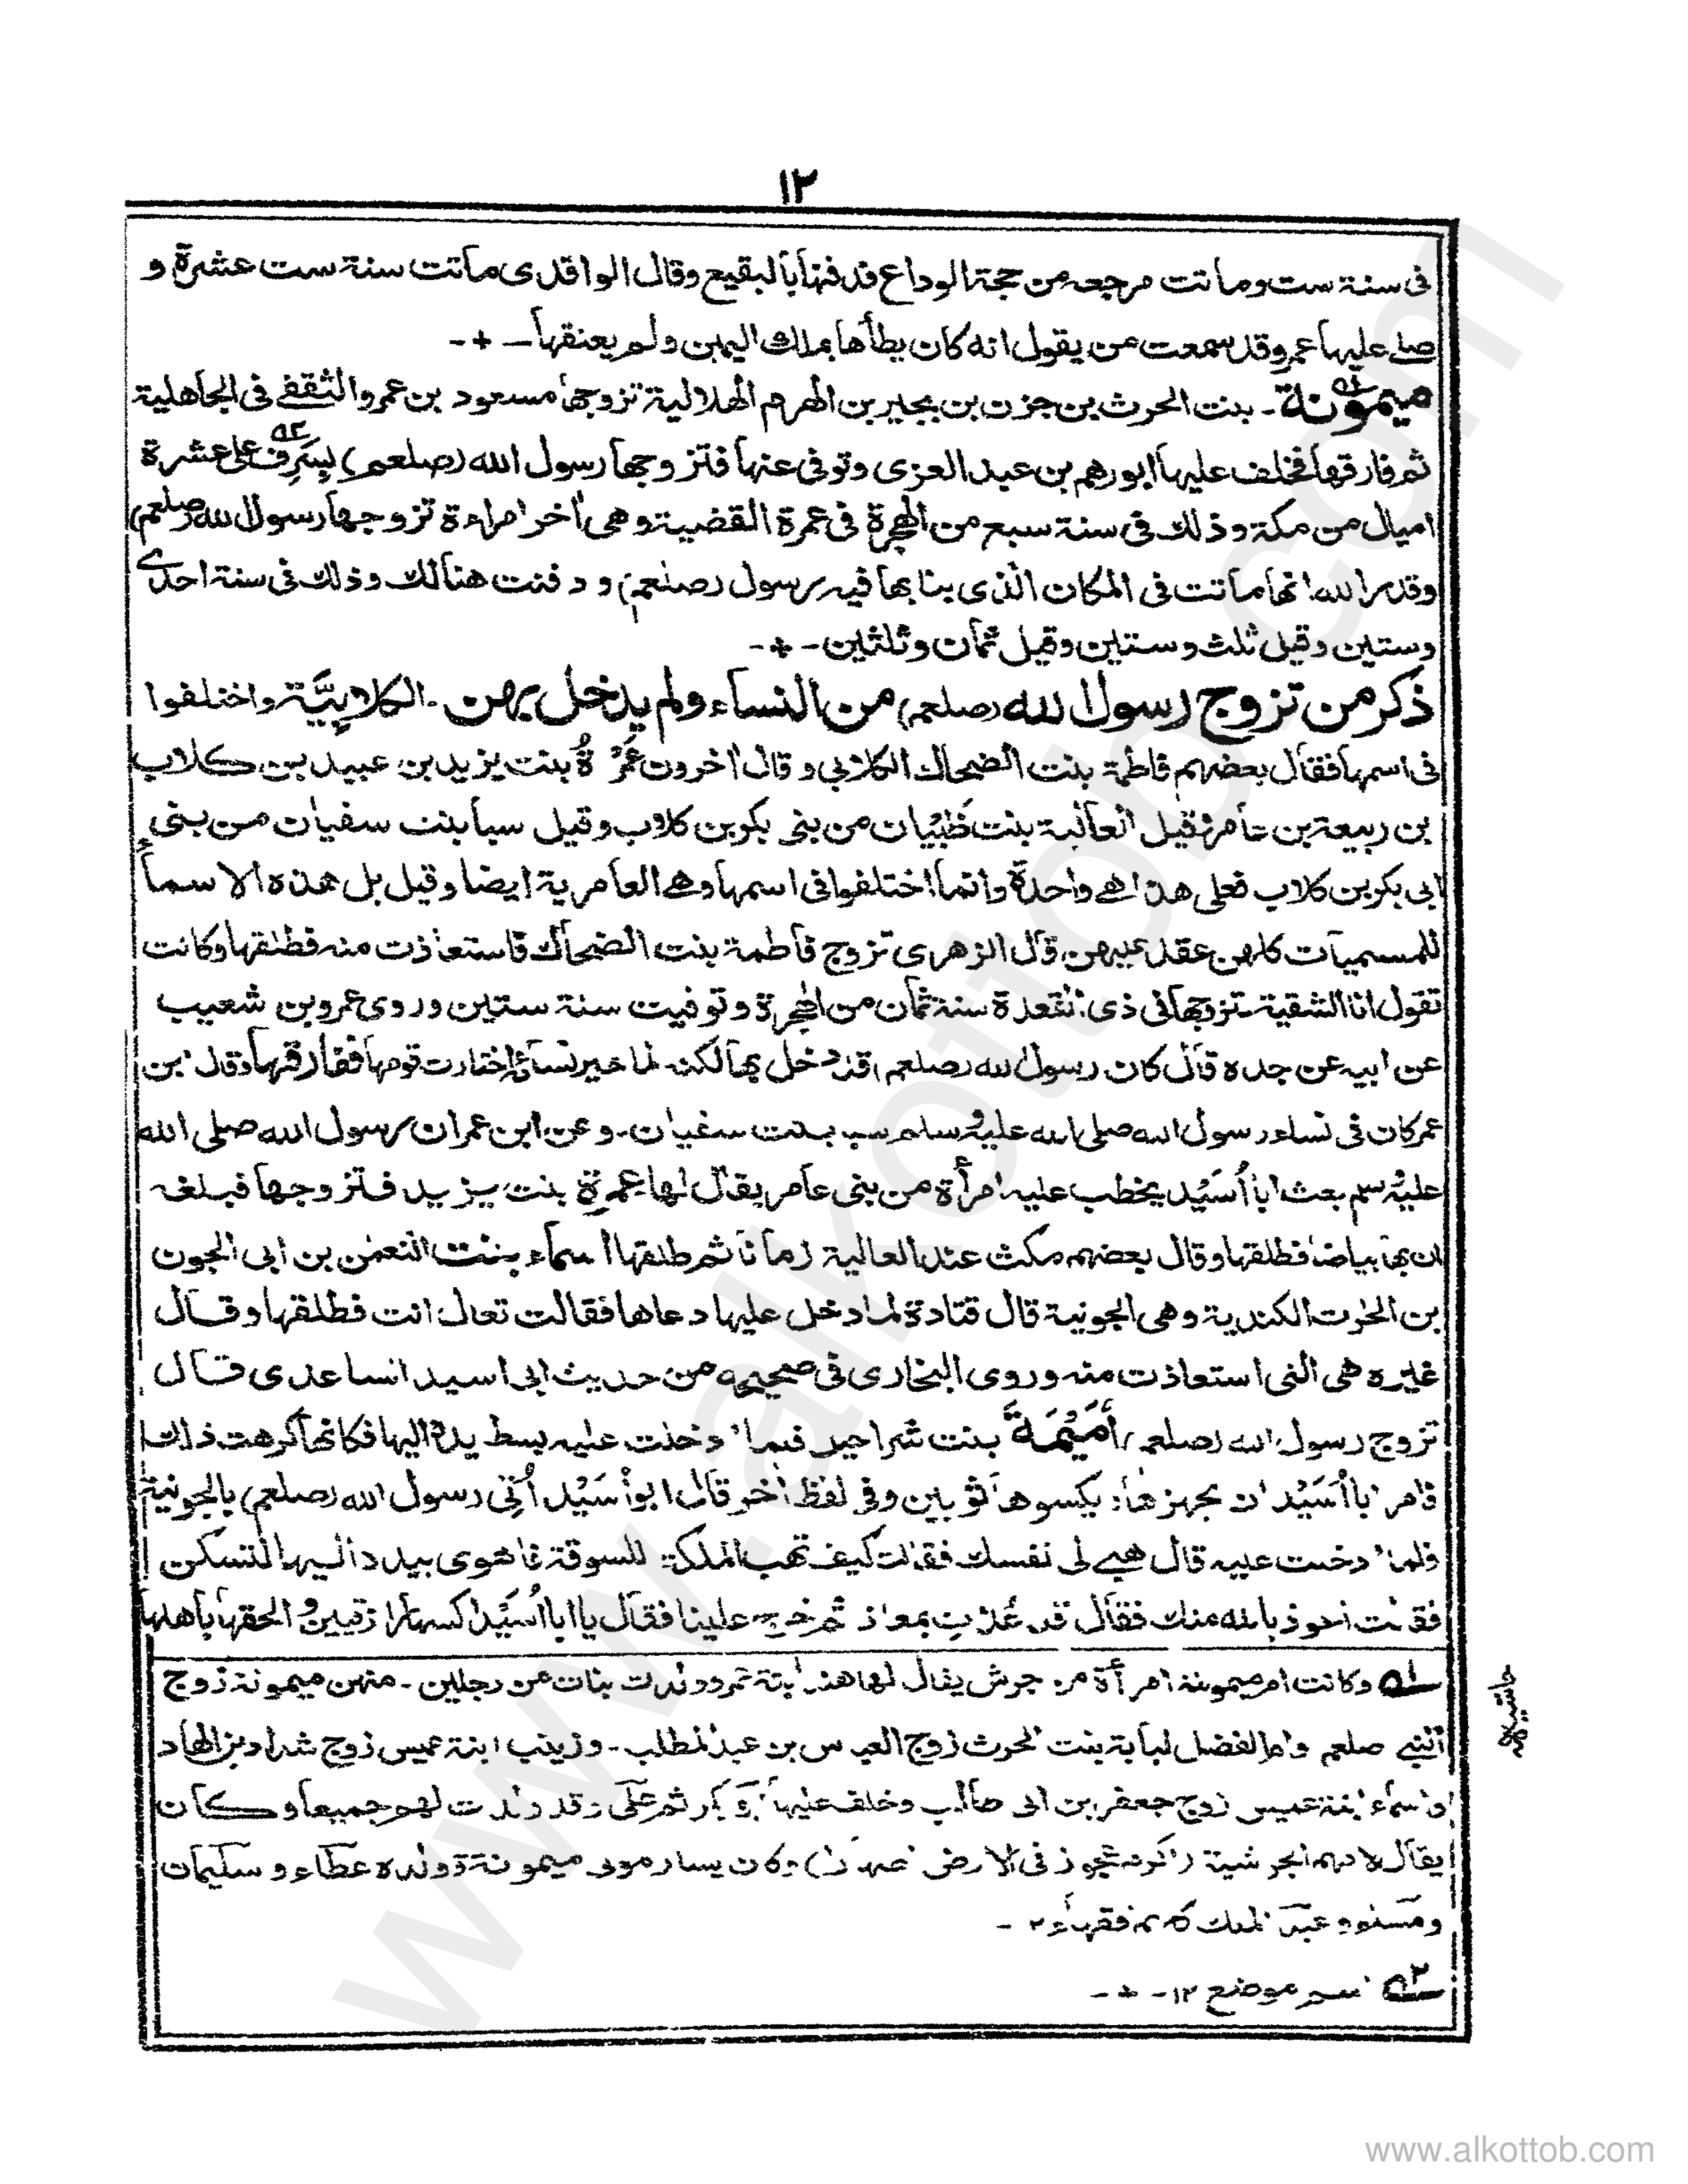 ١٢
فى سنة ست وماتت مرجعه من حجة الوداع فدفنها بالبقيع وقال الواقدى ماتت سنة ست عشرة و
صلے عليها عمر وقد سمعت من يقول انه كان يطأها بملك اليمين ولم يعتقها ـ + ـ
ميمونة ـ بنت الحرث بن حزن بن بجير بن الهرم الهلالية تزوجها مسعود بن عمرو الثقفے فى الجاهلية
ثم فارقها فخلف عليها ابورهم بن عبد العزى وتوفى عنها فتزوجها رسول الله (صلعم) بسَرِف على عشرة
اميال من مكة وذلك فى سنة سبع من الهجرة فى عمرة القضية وهى اٰخر امراءة تزوجها رسول الله (صلعم)
وقدر الله انها ماتت فى المكان الذى بنا بها فيه رسول (صلعم) ودفنت هنالك وذلك فى سنة احدے
وستين وقيل ثلث وستين وقيل ثمان وثلثين ـ + ـ
ذكر من تزوج رسول الله (صلعم) من النساء ولم يدخل بهن ـ الكلابِيَّة واختلفوا
فى اسمها فقال بعضهم فاطمة بنت الضحاك الكلابي وقال اٰخرون عَمرْةُ بنت يزيد بن عبيد بن كلاب
بن ربيعة بن عامر وقيل العالية بنت ظَبْيان من بنى بكر بن كلاب وقيل سبا بنت سفيان من بنى
ابى بكر بن كلاب فعلى هذا هے واحدة وانما اختلفوا فى اسمها وهے العامرية ايضا وقيل بل هذه الاسماء
للمسميات كلهن عقد عليهن قال الزهرى تزوج فاطمة بنت الضحاك فاستعاذت منه فطلقها وكانت
تقول انا الشقية ـ تزوجها فى ذى القعدة سنة ثمان من الهجرة وتوفيت سنة ستين وروى عمرو بن شعيب
عن ابيه عن جده قال كان رسول الله (صلعم) قد دخل بها لكنه لما خير نسائه اختارت قومها ففارقها وقال ابن
عمر كان فى نساء رسول الله صلى الله عليه وسلم سبا بنت سفيان ـ وعن ابن عمر ان رسول الله صلى الله
عليه وسلم بعث ابا أُسَيْد يخطب عليه امرأة من بنى عامر يقال لها عمرة بنت يزيد فتزوجها فبلغه
ان بها بياضا فطلقها وقال بعضهم مكث عند العالية زمانا ثم طلقها اسماء بنت النعمٰن بن ابى الجون
بن الحٰرث الكندية وهى الجونية قال قتادة لما دخل عليها دعاها فقالت تعال انت فطلقها وقال
غيره هى التى استعاذت منه وروى البخارى فى صحيحه من حديث ابى اسيد الساعدى قال
تزوج رسول الله (صلعم) أُمَيْمَةَ بنت شراحيل فلما ادخلت عليه بسط يده اليها فكانها كرهت ذلك
فامر ابا أُسَيْد ان يجهزها ويكسوها ثوبين وفى لفظ اٰخر قال ابو أُسَيْد أُتِى رسول الله (صلعم) بالجونية
فلما ادخلت عليه قال هبے لى نفسك فقالت كيف تهب الملكة للسوقة فاهوى بيده اليها لتسكن
فقالت اعوذ بالله منك فقال قد عُذْتِ بمعاذ ثم خرج علينا فقال يا ابا أُسَيْد اكسها رازقيين والحقها باهلها
حاشيه
١ه وكانت ام ميمونة امرأة من جرش يقال لها هند ابنة عمرو ولدت بنات من رجلين ـ منهن ميمونة زوج
النبے صلعم وام الفضل لبابة بنت الحرث زوج العباس بن عبد المطلب ـ وزينب ابنة عميس زوج شداد بن الهاد
واسماء ابنة عميس زوج جعفر بن ابى طالب وخلف عليها ابو بكر ثم على وقد ولدت لهم جميعا وكان
يقال لامهم الجرشية (اكرم عجوز فى الارض اصهارا) وكان يسار مولى ميمونة وولده عطاء وسليمان
ومسلم وعبد الملك كلهم فقهاء ١٢ ـ
٢ه اسم موضع ١٢ ـ + ـ
www.alkottob.com
www.alkottob.com